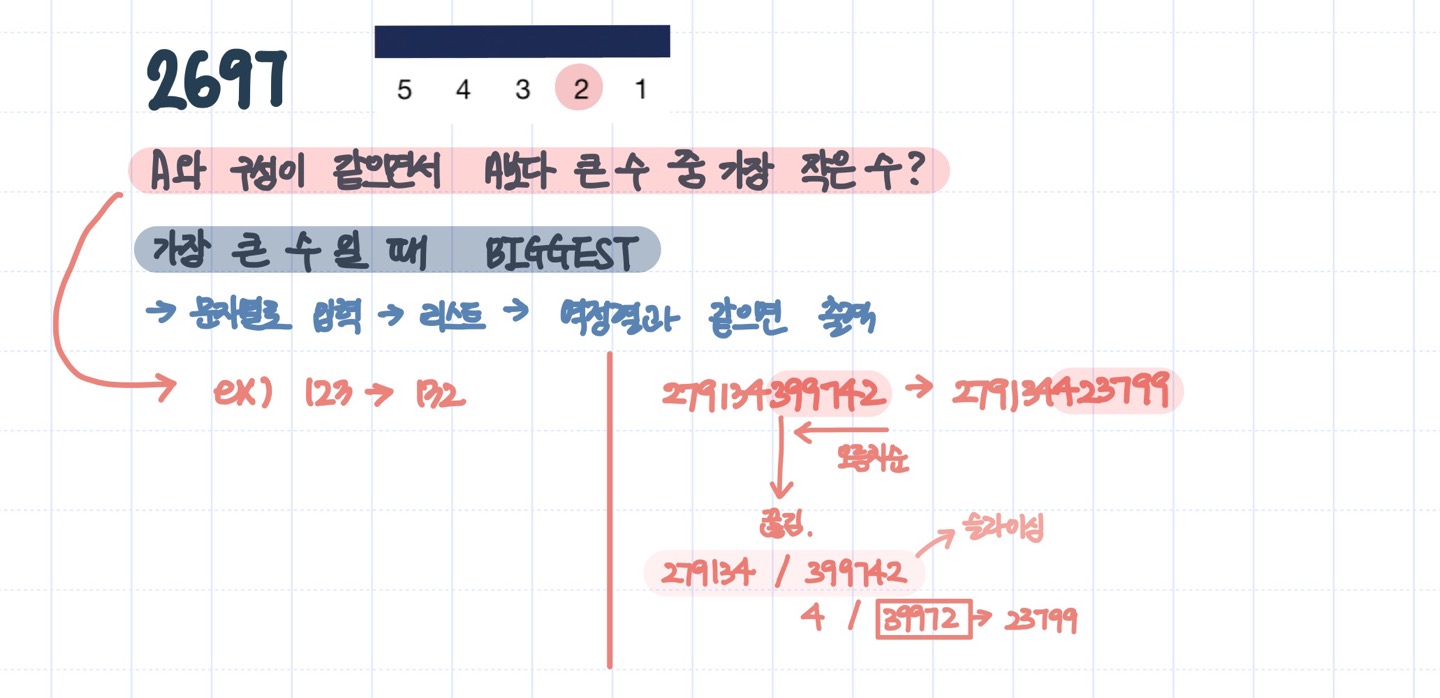 2697
5 4 3 2 1
A와 구성이 같으면서 A보다 큰 수 중 가장 작은 수?
가장 큰 수 일 때 BIGGEST
→ 문자열로 입력 → 리스트 → 역정렬과 같으면 출력
ex) 123 → 132
279134399742 → 279134423799
오름차순
끊김.
슬라이싱
279134 / 399742
4 / 39972 → 23799